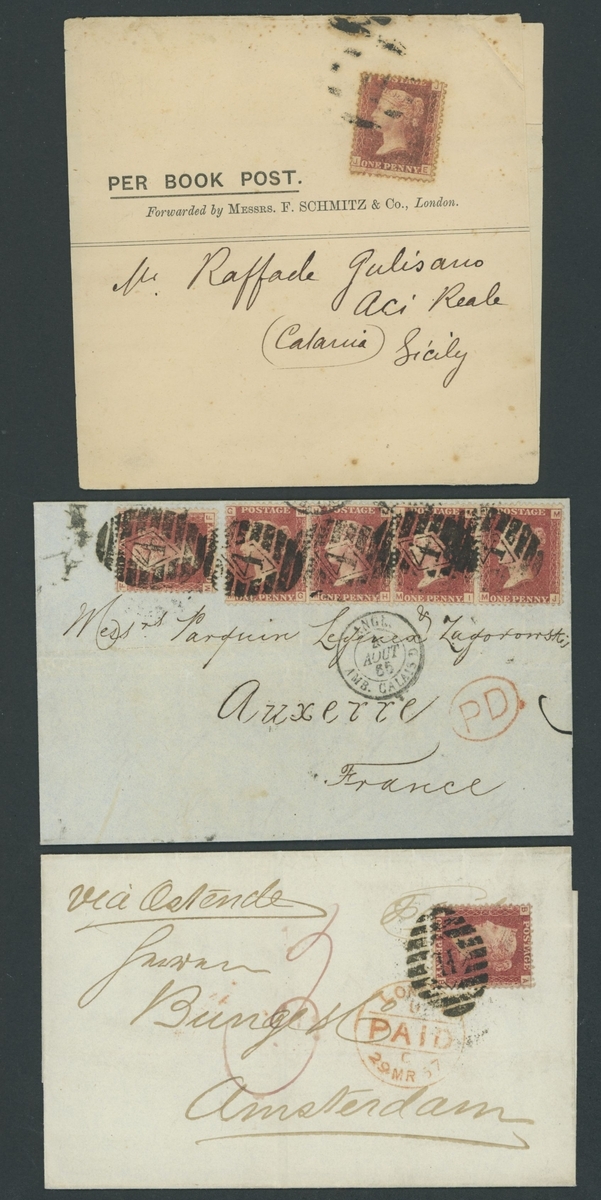 ONE PENNY
PER BOOK POST.
Forwarded by MESSRS. F. SCHMITZ & Co., London.
Mr. Raffaele Gulisano
Aci Reale
(Catania)
Sicily
POSTAGE POSTAGE POSTAGE POSTAGE
ONE PENNY ONE PENNY ONE PENNY ONE PENNY
Messrs Parquin Legueux & Zagorowski
ANGL.
AOUT
65
AMB. CALAIS
Auxerre
PD
France
via Ostende
POSTAGE
Herren
Bunge & Co
PAID
29 MR 57
Amsterdam